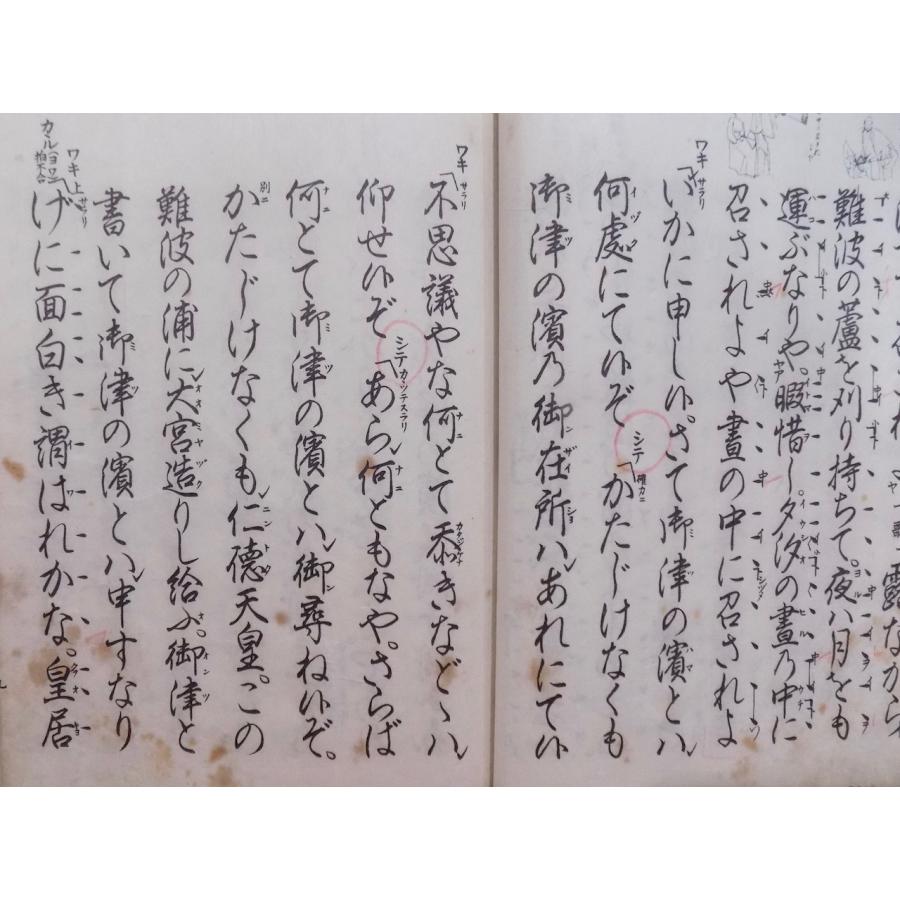 難波の蘆を刈り持ちて。夜ハ月をも
運ぶなりや。暇惜し。夕汐の晝乃中に
召されよや晝の中に召されよ
ワキ サラリ「いかに申し候。さて御津の濱とハ
何處にて候ぞ シテ「かたじけなくも
御津の濱乃御在所ハあれにて候
ワキ サラリ「不思議やな何とて忝きなどゝハ
仰せ候ぞ シテ「あら何ともなや。さらば
何とて御津の濱とハ御尋ね候ぞ。
かたじけなくも仁德天皇。この
難波の浦に大宮造りし給ふ。御津と
書いて御津の濱とハ申すなり
ワキ 上 サラリ「げに面白き謂はれかな。皇居